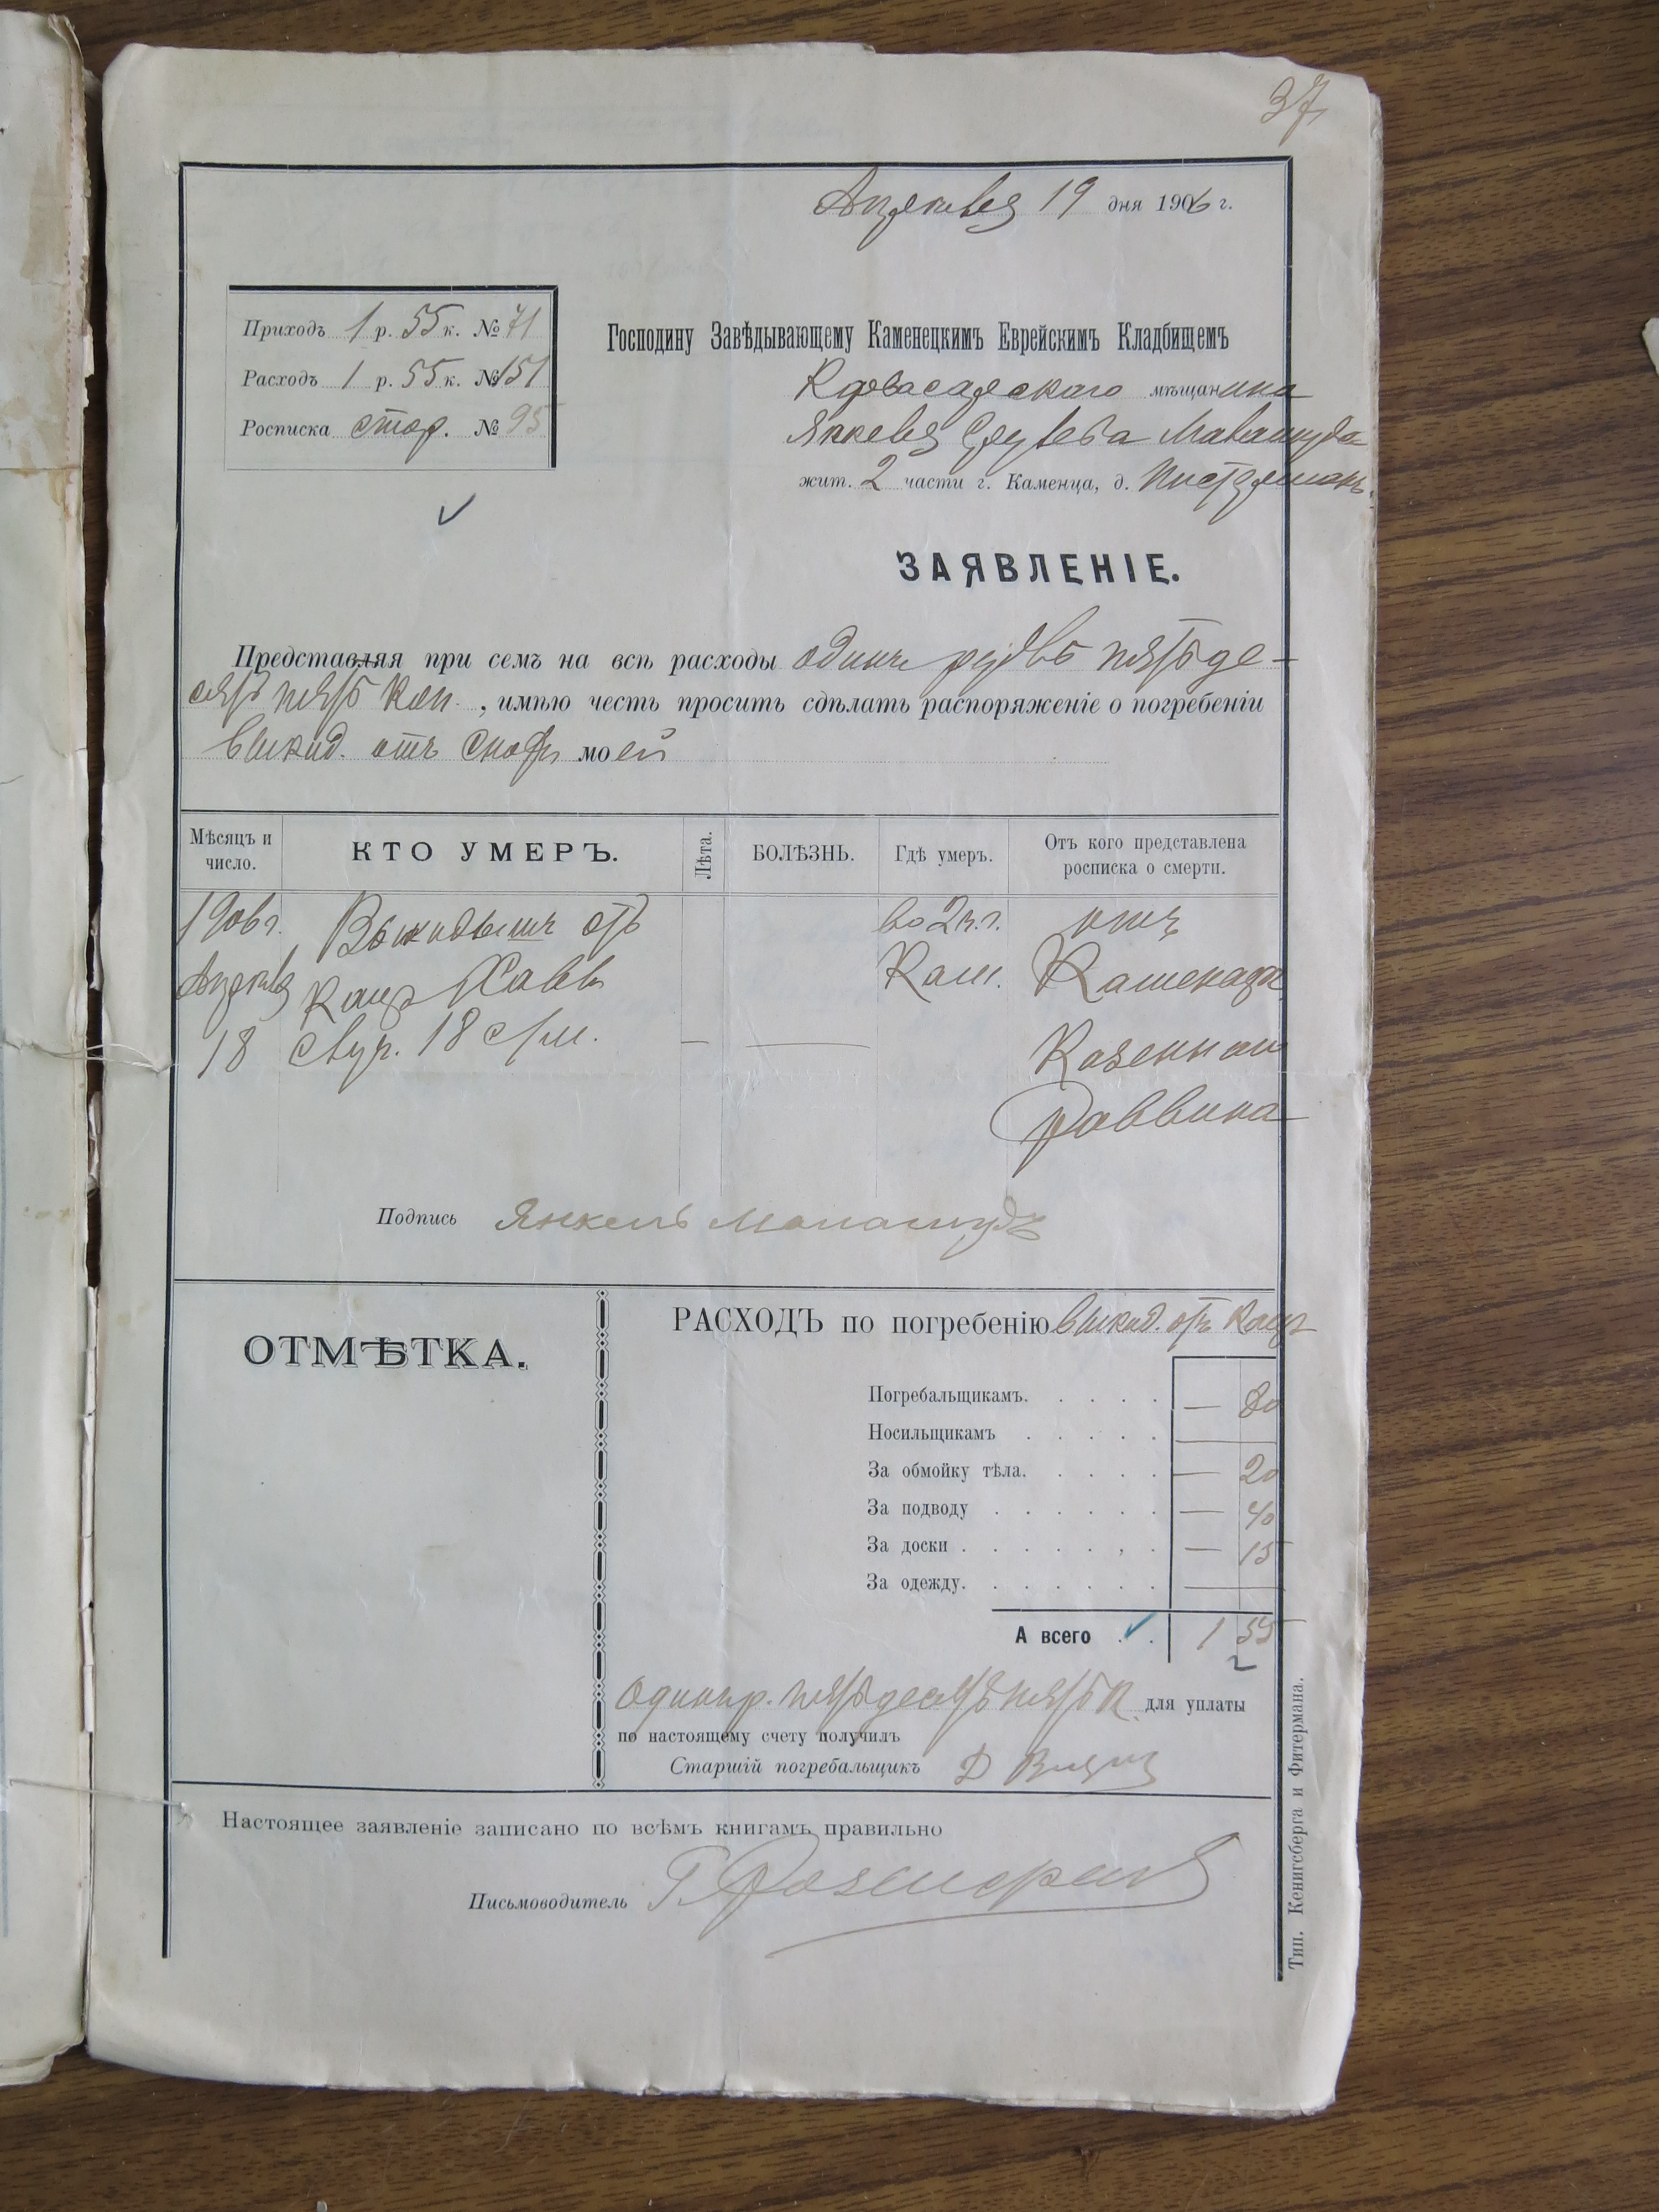 37
Апреля 19 дня 1906 г.
Приходъ 1 р. 55 к. № 71
Расходъ 1 р. 55 к. № 151
Росписка стор. № 95
Господину Завѣдывающему Каменецкимъ Еврейскимъ Кладбищемъ
мѣщанина
Янкеля
жит. 2 части г. Каменца, д.
ЗАЯВЛЕНІЕ.
Представляя при семъ на всѣ расходы одинъ рубль пятьде-
сятъ пять коп., имѣю честь просить сдѣлать распоряженіе о погребеніи
выкид. отъ моей
Мѣсяцъ и число.
КТО УМЕРЪ.
Лѣта.
БОЛѢЗНЬ.
Гдѣ умеръ.
Отъ кого представлена росписка о смерти.
1906 г. Выкидышъ отъ во 2 ч. г. отъ
Апреля Кам. Каменецк.
18 18 с/м. — — Казеннаго
Раввина
Подпись Янкель
ОТМѢТКА.
РАСХОДЪ по погребенію выкид. отъ
Погребальщикамъ. . . . . — 80
Носильщикамъ . . . . . —
За обмойку тѣла. . . . . — 20
За подводу . . . . . . — 40
За доски . . . . . , . — 15
За одежду. . . . . . . —
А всего . . 1 55
Одинъ р. пятьдесятъ пять к. для уплаты
по настоящему счету получилъ
Старшій погребальщикъ Д
Настоящее заявленіе записано по всѣмъ книгамъ правильно
Письмоводитель Г.
Тип. Кенигсберга и Фитермана.